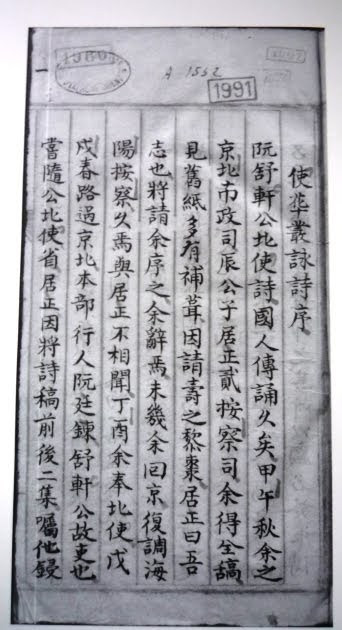 1989
A 1552
1991
使華叢詠詩序
阮舒軒公北使詩國人傳誦久矣甲午秋余之
京北市政司辰公子居正貳按察司余得全稿
見舊紙多有補葺因請壽之黎棗居正曰吾
志也將請余序之余辭焉未幾余回京復調海
陽按察久焉與居正不相聞丁酉余奉北使戊
戌春路過京北本部行人阮廷鍊舒軒公故吏也
嘗隨公北使省居正因將詩稿前後二集囑他鋟